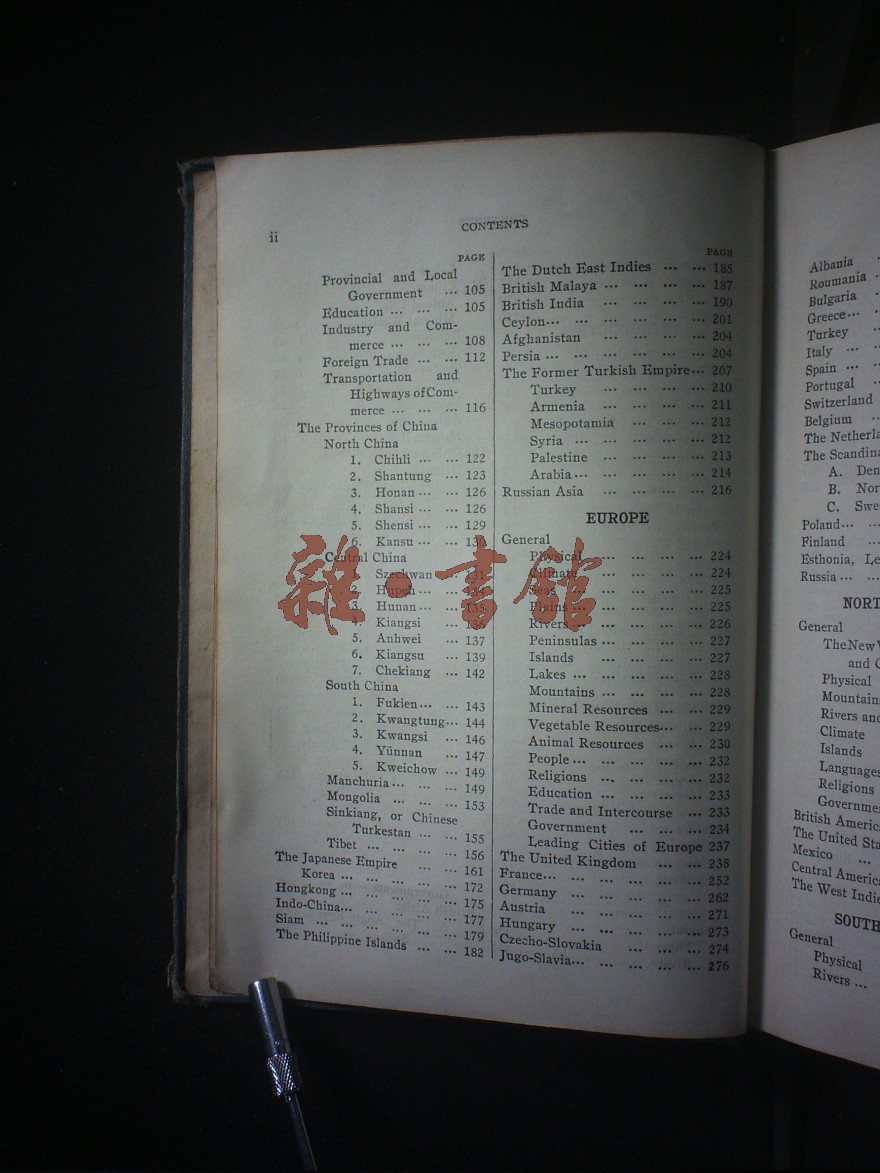 ii
CONTENTS
PAGE
Provincial and Local
Government ... 105
Education ... ... ... 105
Industry and Com-
merce ... ... ... 108
Foreign Trade ... ... 112
Transportation and
Highways of Com-
merce ... ... ... 116
The Provinces of China
North China
1. Chihli ... ... 122
2. Shantung ... 123
3. Honan ... ... 126
4. Shansi ... ... 126
5. Shensi ... ... 129
6. Kansu ... ... 130
Central China
1. Szechwan ... 131
2. Hupeh ... ... 134
3. Hunan ... ... 135
4. Kiangsi ... 136
5. Anhwei ... 137
6. Kiangsu ... 139
7. Chekiang ... 142
South China
1. Fukien ... ... 143
2. Kwangtung ... 144
3. Kwangsi ... 146
4. Yünnan ... 147
5. Kweichow ... 149
Manchuria ... ... ... 149
Mongolia ... ... ... 153
Sinkiang, or Chinese
Turkestan ... ... 155
Tibet ... ... ... ... 156
The Japanese Empire ... ... 161
Korea ... ... ... ... ... 172
Hongkong ... ... ... ... ... 175
Indo-China ... ... ... ... ... 177
Siam ... ... ... ... ... ... 179
The Philippine Islands ... ... 182
PAGE
The Dutch East Indies ... ... 185
British Malaya ... ... ... ... 187
British India ... ... ... ... 190
Ceylon ... ... ... ... ... 201
Afghanistan ... ... ... ... 204
Persia ... ... ... ... ... 204
The Former Turkish Empire ... 207
Turkey ... ... ... ... 210
Armenia ... ... ... ... 211
Mesopotamia ... ... ... 212
Syria ... ... ... ... ... 212
Palestine ... ... ... ... 213
Arabia ... ... ... ... ... 214
Russian Asia ... ... ... ... 216
EUROPE
General
Physical ... ... ... ... 224
Climate ... ... ... ... 224
Seas ... ... ... ... ... 225
Plains ... ... ... ... ... 225
Rivers ... ... ... ... ... 226
Peninsulas ... ... ... ... 227
Islands ... ... ... ... 227
Lakes ... ... ... ... ... 228
Mountains ... ... ... ... 228
Mineral Resources ... ... 229
Vegetable Resources ... ... 229
Animal Resources ... ... 230
People ... ... ... ... ... 232
Religions ... ... ... ... 232
Education ... ... ... ... 233
Trade and Intercourse ... 233
Government ... ... ... 234
Leading Cities of Europe 237
The United Kingdom ... ... ... 238
France ... ... ... ... ... ... 252
Germany ... ... ... ... ... 262
Austria ... ... ... ... ... 271
Hungary ... ... ... ... ... 273
Czecho-Slovakia ... ... ... 274
Jugo-Slavia ... ... ... ... ... 276
Albania
Roumania
Bulgaria
Greece ...
Turkey
Italy ... ...
Spain ... ...
Portugal
Switzerland
Belgium
The Netherla
The Scandina
A. Den
B. Nor
C. Swe
Poland ...
Finland
Esthonia, Le
Russia ... ...
NORT
General
The New
and C
Physical
Mountain
Rivers and
Climate
Islands
Languages
Religions
Governme
British Americ
The United Sta
Mexico ...
Central Americ
The West Indie
SOUTH
General
Physical
Rivers ...
雜·書館